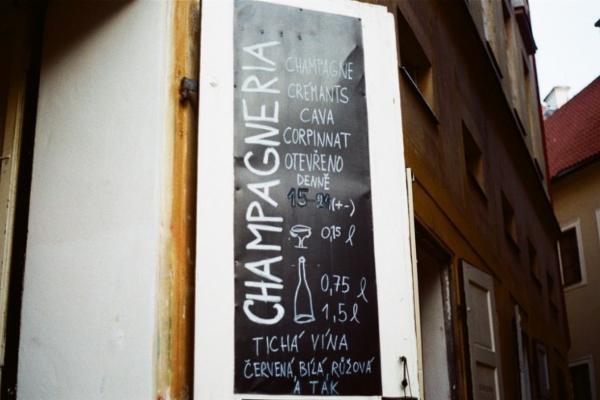 CHAMPAGNERIA
CHAMPAGNE
CRÉMANTS
CAVA
CORPINNAT
OTEVŘENO
DENNĚ
15 21(+-)
0,15 l
0,75 l
1,5 l
TICHÁ VÍNA
ČERVENÁ, BÍLÁ, RŮŽOVÁ
A TAK